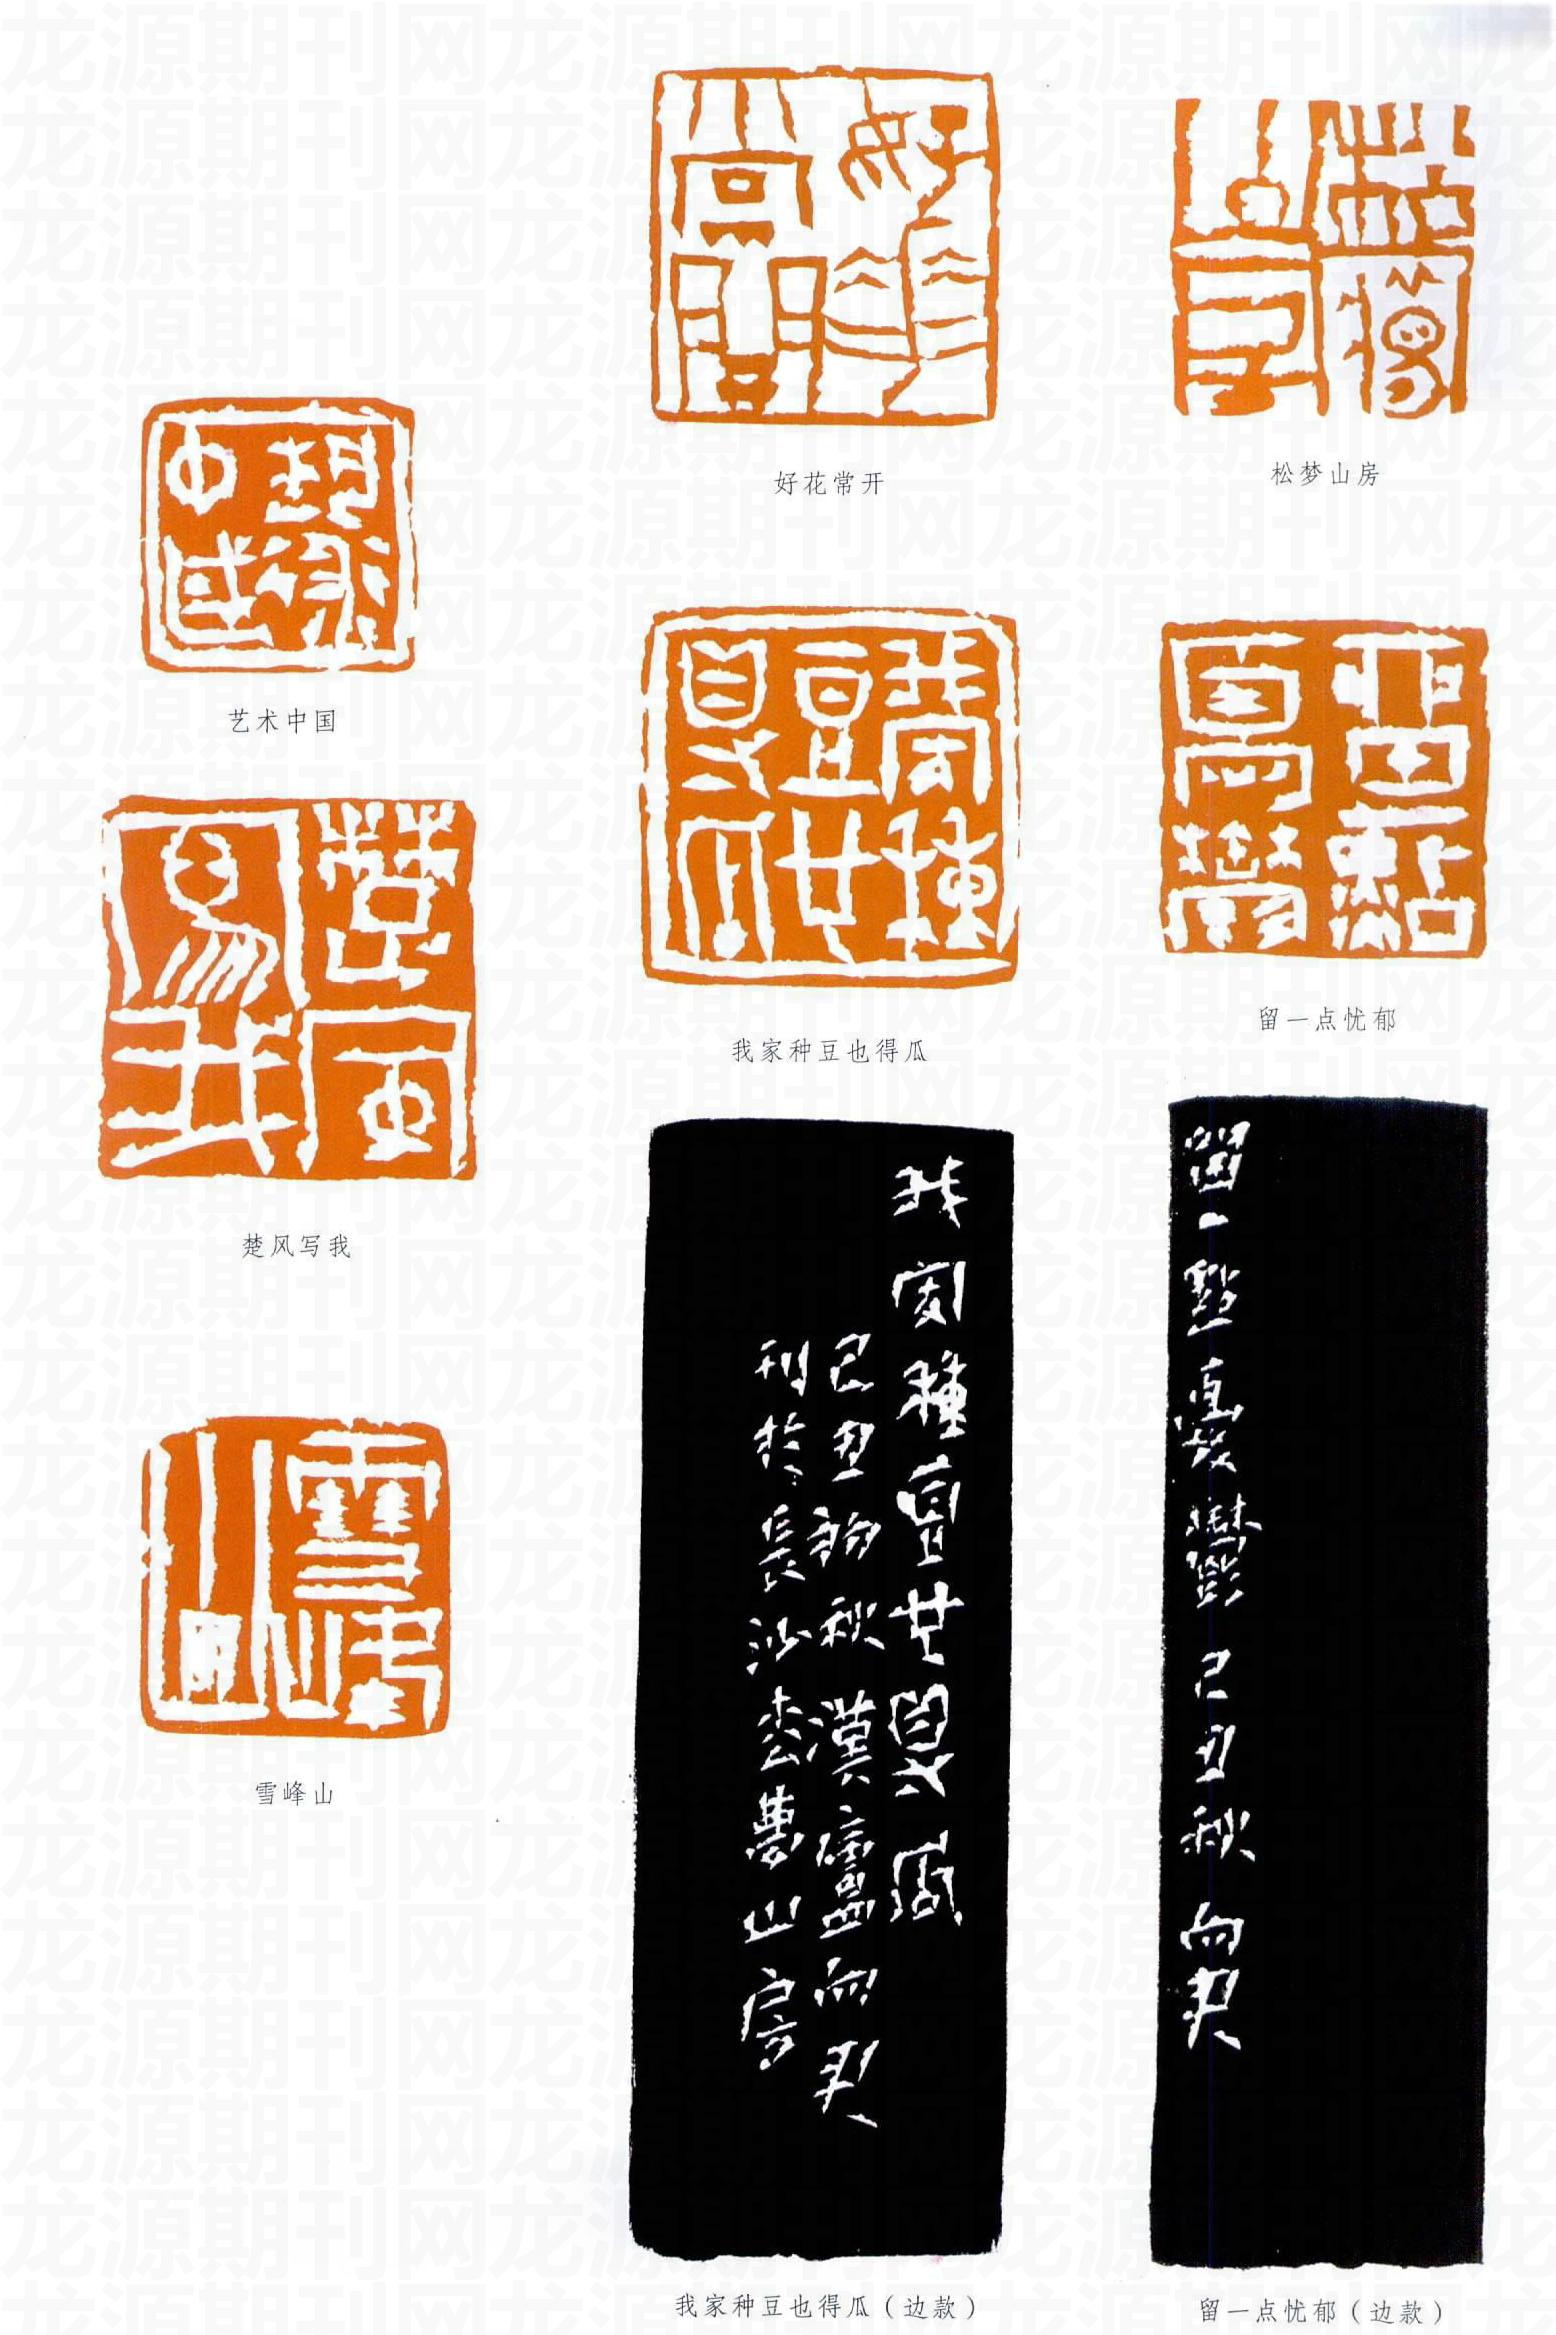 好花常开
松梦山房
艺术中国
我家种豆也得瓜
留一点忧郁
楚风写我
雪峰山
我家種豆也得瓜
己丑初秋漢廬向
刊於長沙松夢山房
留一點憂鬱己丑秋向
我家种豆也得瓜（边款）
留一点忧郁（边款）
龙源期刊网